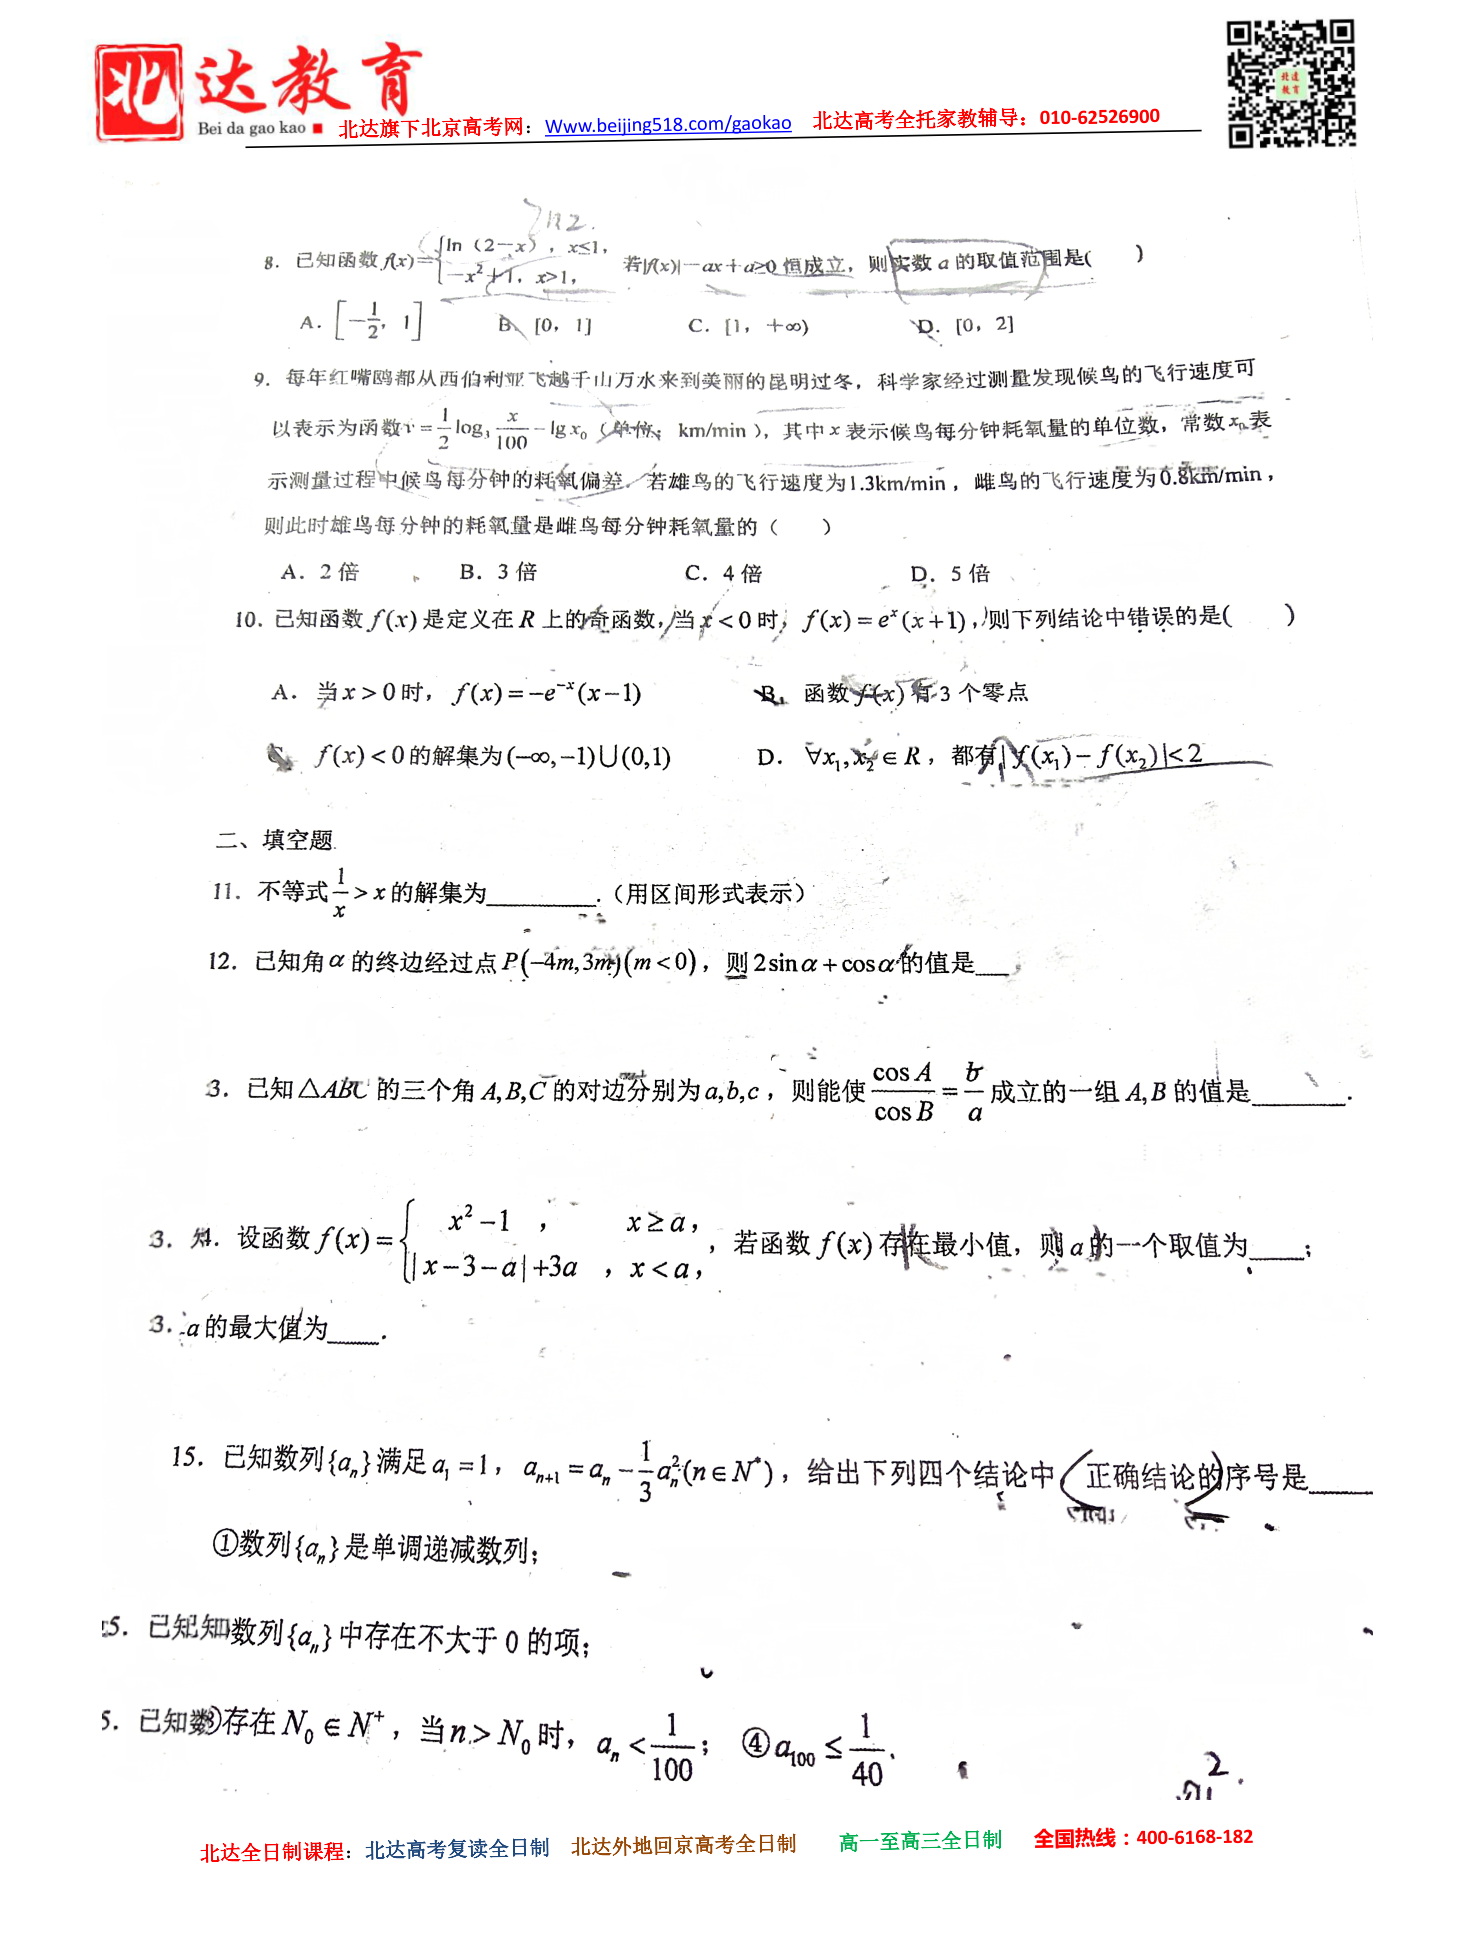 北达教育
Bei da gao kao
北达旗下北京高考网：Www.beijing518.com/gaokao 北达高考全托家教辅导：010-62526900
北达教育
8. 已知函数f(x)={ln（2-x），x≤1， -x²+1，x>1， 若|f(x)|-ax+a≥0 恒成立，则实数 a 的取值范围是( )
A. [-1/2, 1] B. [0, 1] C. [1, +∞) D. [0, 2]
9. 每年红嘴鸥都从西伯利亚飞越千山万水来到美丽的昆明过冬，科学家经过测量发现候鸟的飞行速度可
以表示为函数v=1/2 log₃ x/100 - lg x₀（单位：km/min），其中 x 表示候鸟每分钟耗氧量的单位数，常数x₀表
示测量过程中候鸟每分钟的耗氧偏差. 若雄鸟的飞行速度为1.3km/min，雌鸟的飞行速度为0.8km/min，
则此时雄鸟每分钟的耗氧量是雌鸟每分钟耗氧量的（ ）
A. 2 倍 B. 3 倍 C. 4 倍 D. 5 倍
10. 已知函数 f(x) 是定义在 R 上的奇函数,当 x<0 时，f(x)=eˣ(x+1)，则下列结论中错误的是( )
A. 当 x>0 时，f(x)=-e⁻ˣ(x-1) B. 函数 f(x) 有 3 个零点
C. f(x)<0 的解集为 (-∞,-1)∪(0,1) D. ∀x₁,x₂∈R，都有| f(x₁)-f(x₂)|<2
二、填空题
11. 不等式 1/x > x 的解集为________.（用区间形式表示）
12. 已知角 α 的终边经过点 P(-4m,3m)(m<0)，则 2sinα+cosα 的值是___
3. 已知 △ABC 的三个角 A,B,C 的对边分别为 a,b,c，则能使 cosA/cosB = b/a 成立的一组 A,B 的值是________.
3. 4. 设函数 f(x)={x²-1 ， x≥a， |x-3-a|+3a ，x<a， ，若函数 f(x) 存在最小值，则 a 的一个取值为____；
3. a 的最大值为____.
15. 已知数列{aₙ}满足 a₁=1，aₙ₊₁=aₙ-1/3 aₙ²(n∈N*)，给出下列四个结论中，正确结论的序号是____
①数列{aₙ}是单调递减数列；
5. 已知知数列{aₙ}中存在不大于 0 的项；
5. 已知数③存在 N₀∈N⁺，当 n>N₀ 时，aₙ<1/100； ④a₁₀₀≤1/40.
2.
北达全日制课程：北达高考复读全日制 北达外地回京高考全日制 高一至高三全日制 全国热线：400-6168-182